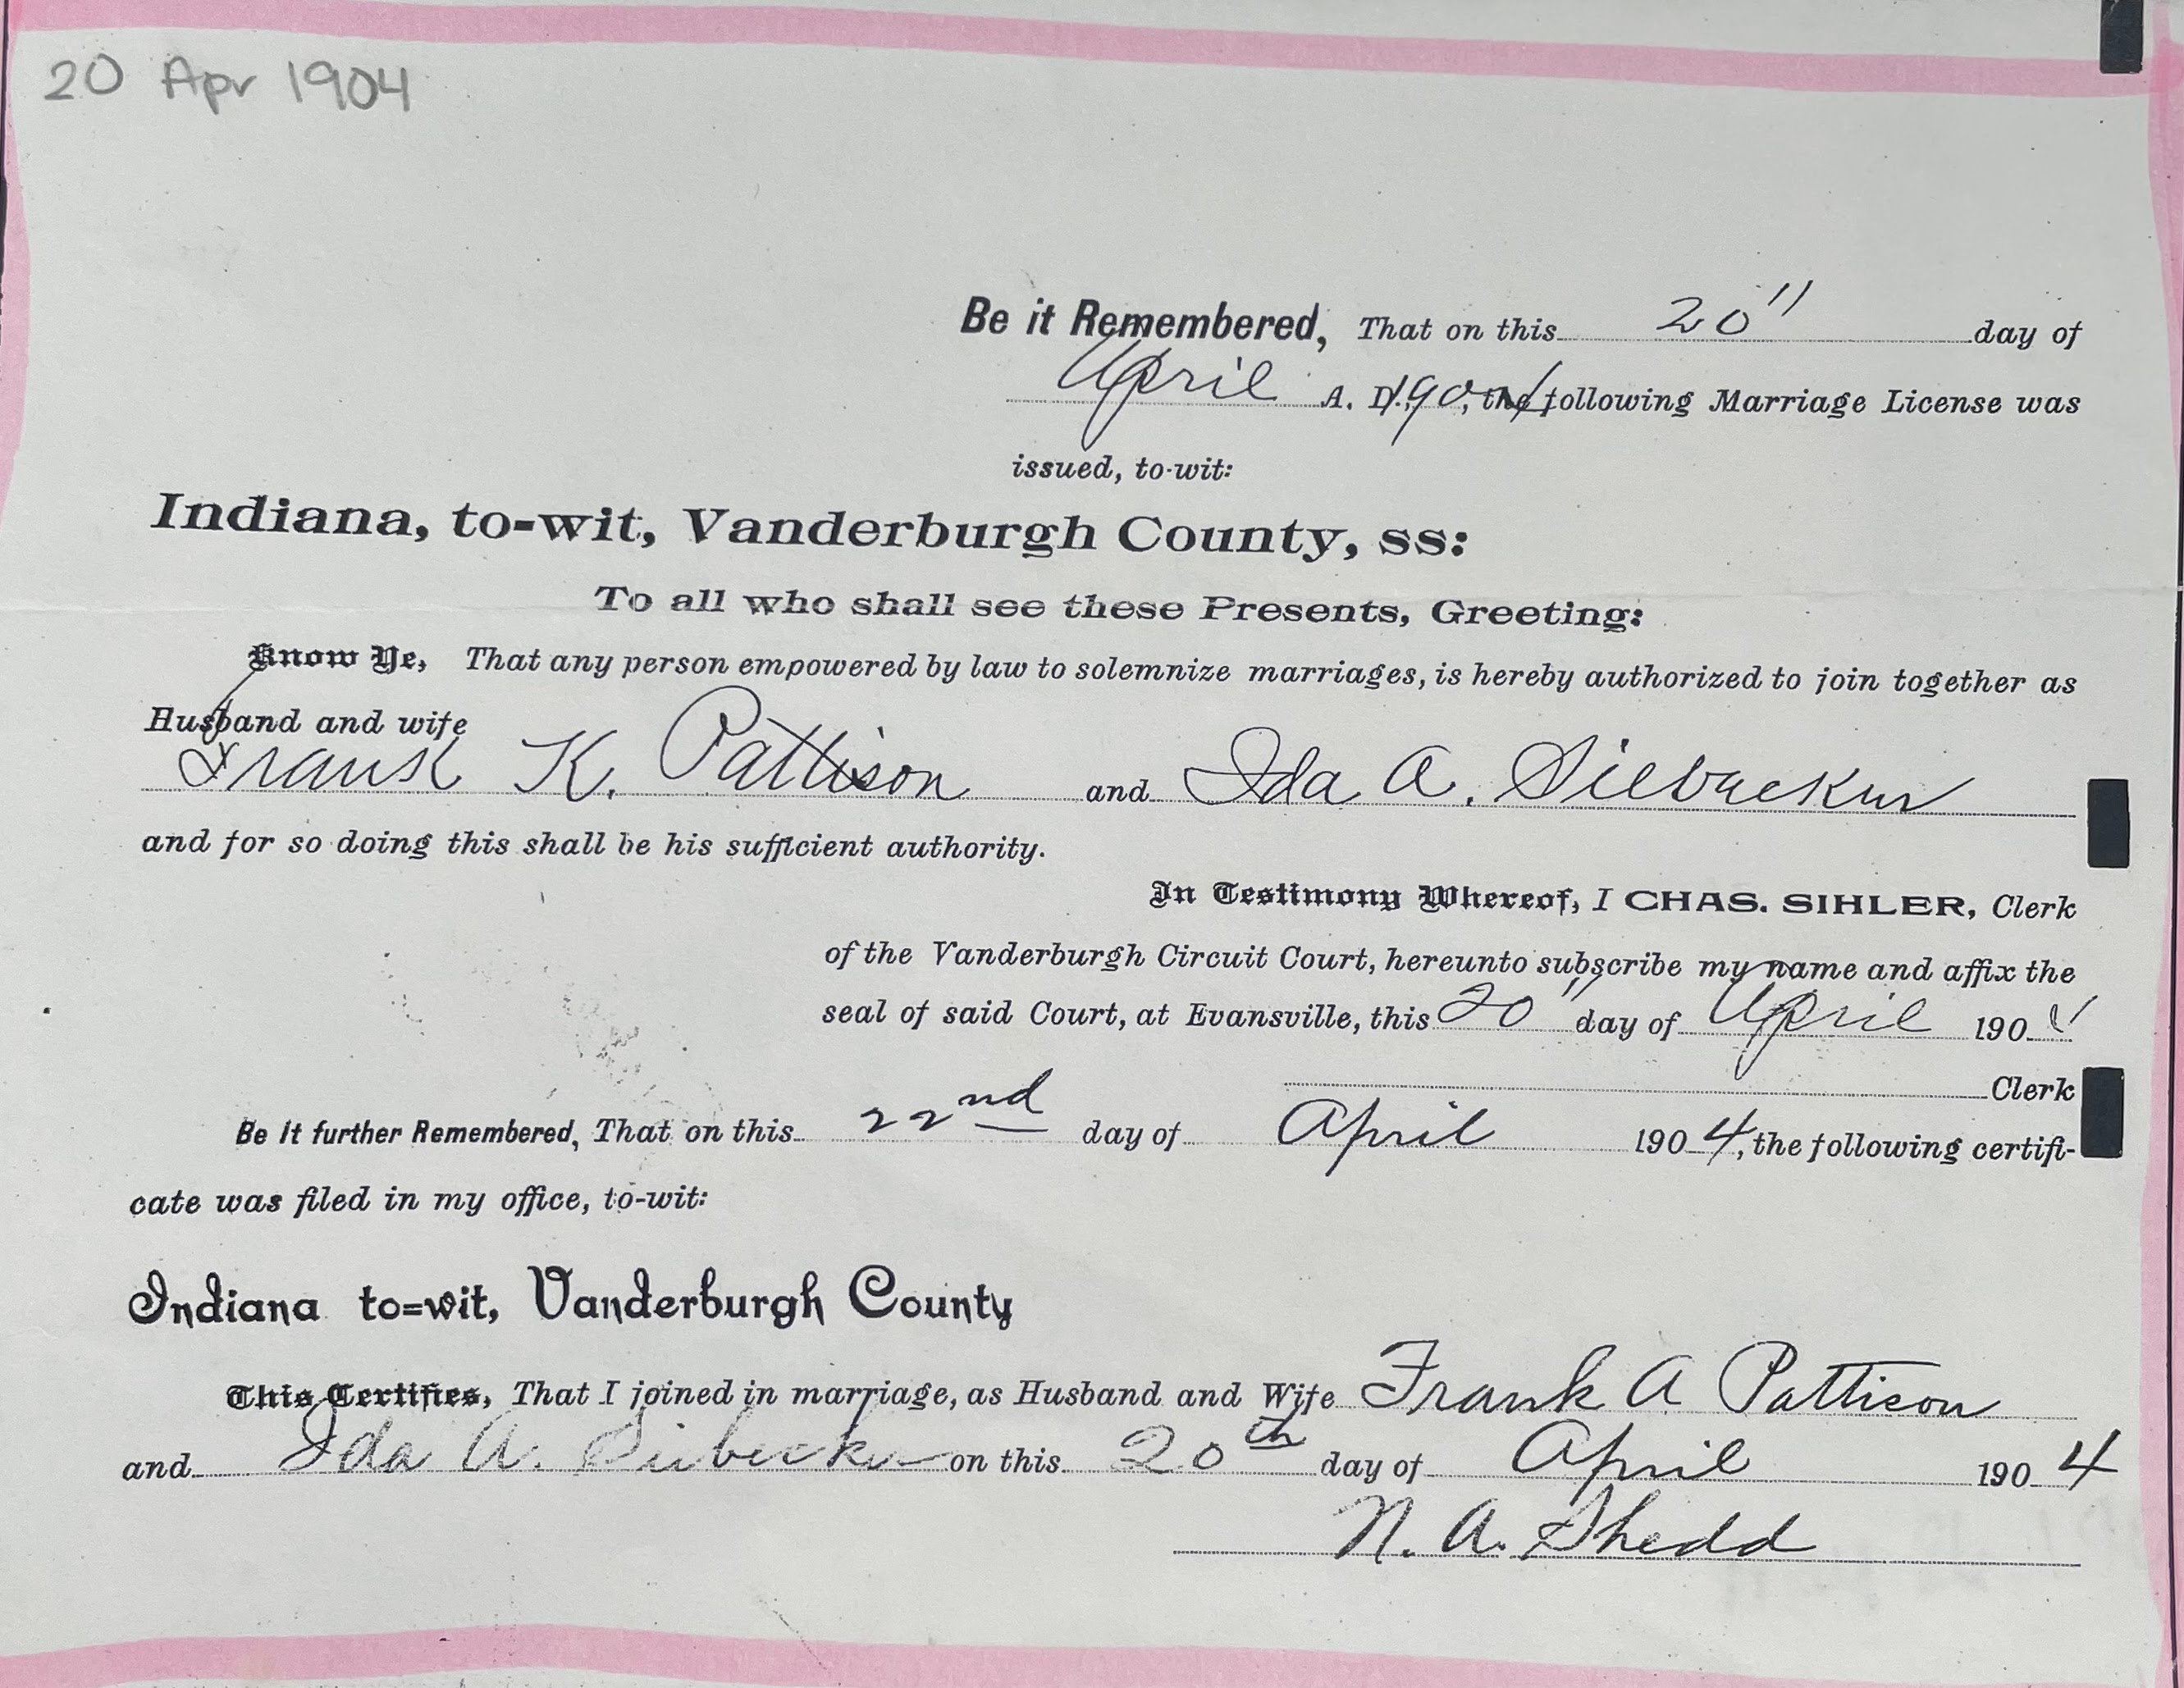 20 Apr 1904
Be it Remembered, That on this 20" day of
April A. D. 1904, the following Marriage License was
issued, to-wit:
Indiana, to-wit, Vanderburgh County, ss:
To all who shall see these Presents, Greeting:
Know Ye, That any person empowered by law to solemnize marriages, is hereby authorized to join together as
Husband and wife
Frank K. Pattison and Ida A. Siebecker
and for so doing this shall be his sufficient authority.
In Testimony Whereof, I CHAS. SIHLER, Clerk
of the Vanderburgh Circuit Court, hereunto subscribe my name and affix the
seal of said Court, at Evansville, this 20" day of April 1904
Clerk
Be It further Remembered, That on this 22nd day of April 1904, the following certifi-
cate was filed in my office, to-wit:
Indiana to=wit, Vanderburgh County
This Certifies, That I joined in marriage, as Husband and Wife Frank A Pattison
and Ida A. Siebecker on this 20th day of April 1904
N. A. Shedd